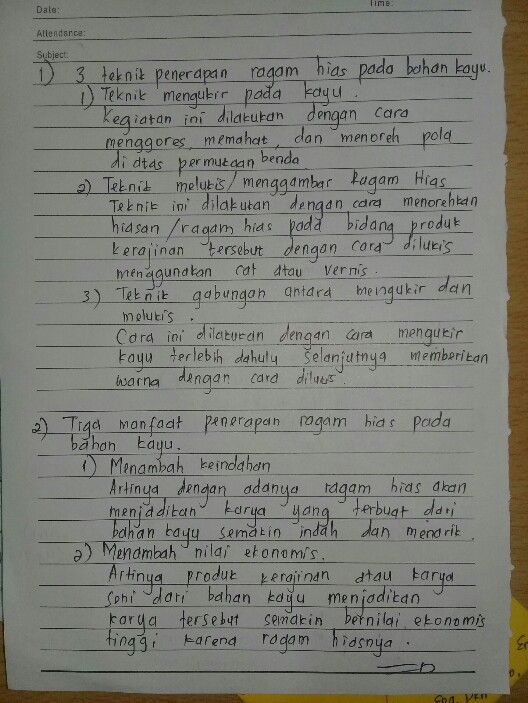 Date: Time:
Attendance:
Subject:
1) 3 teknik penerapan ragam hias pada bahan kayu.
1) Teknik mengukir pada kayu.
Kegiatan ini dilakukan dengan cara
menggores, memahat, dan menoreh pola
di atas permukaan benda.
2) Teknik melukis/menggambar Ragam Hias
Teknik ini dilakukan dengan cara menorehkan
hiasan/ragam hias pada bidang produk
kerajinan tersebut dengan cara dilukis
menggunakan cat atau vernis.
3) Teknik gabungan antara mengukir dan
melukis.
Cara ini dilakukan dengan cara mengukir
kayu terlebih dahulu selanjutnya memberikan
warna dengan cara dilukis.
2) Tiga manfaat penerapan ragam hias pada
bahan kayu.
1) Menambah keindahan
Artinya dengan adanya ragam hias akan
menjadikan karya yang terbuat dari
bahan kayu semakin indah dan menarik.
2) Menambah nilai ekonomis.
Artinya produk kerajinan atau karya
seni dari bahan kayu menjadikan
karya tersebut semakin bernilai ekonomis
tinggi karena ragam hiasnya.